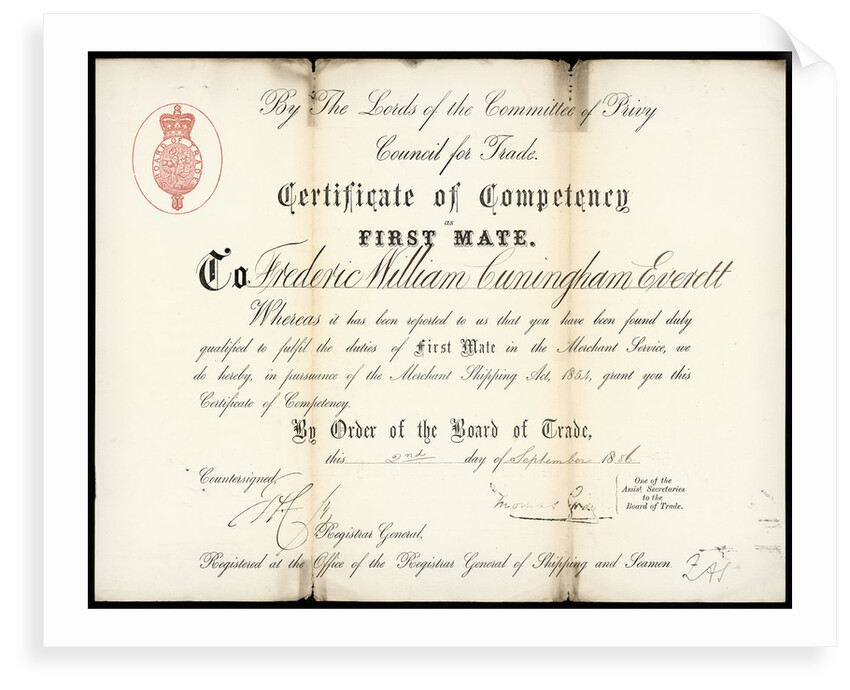 By The Lords of the Committee of Privy
Council for Trade.
BOARD OF TRADE
Certificate of Competency
as
FIRST MATE.
To Frederic William Cuningham Everett
Whereas it has been reported to us that you have been found duly
qualified to fulfil the duties of First Mate in the Merchant Service, we
do hereby, in pursuance of the Merchant Shipping Act, 1854, grant you this
Certificate of Competency.
By Order of the Board of Trade,
this 2nd day of September 1886
Countersigned,
Thomas Gray
One of the
Assist. Secretaries
to the
Board of Trade.
Registrar General,
Registered at the Office of the Registrar General of Shipping and Seamen.